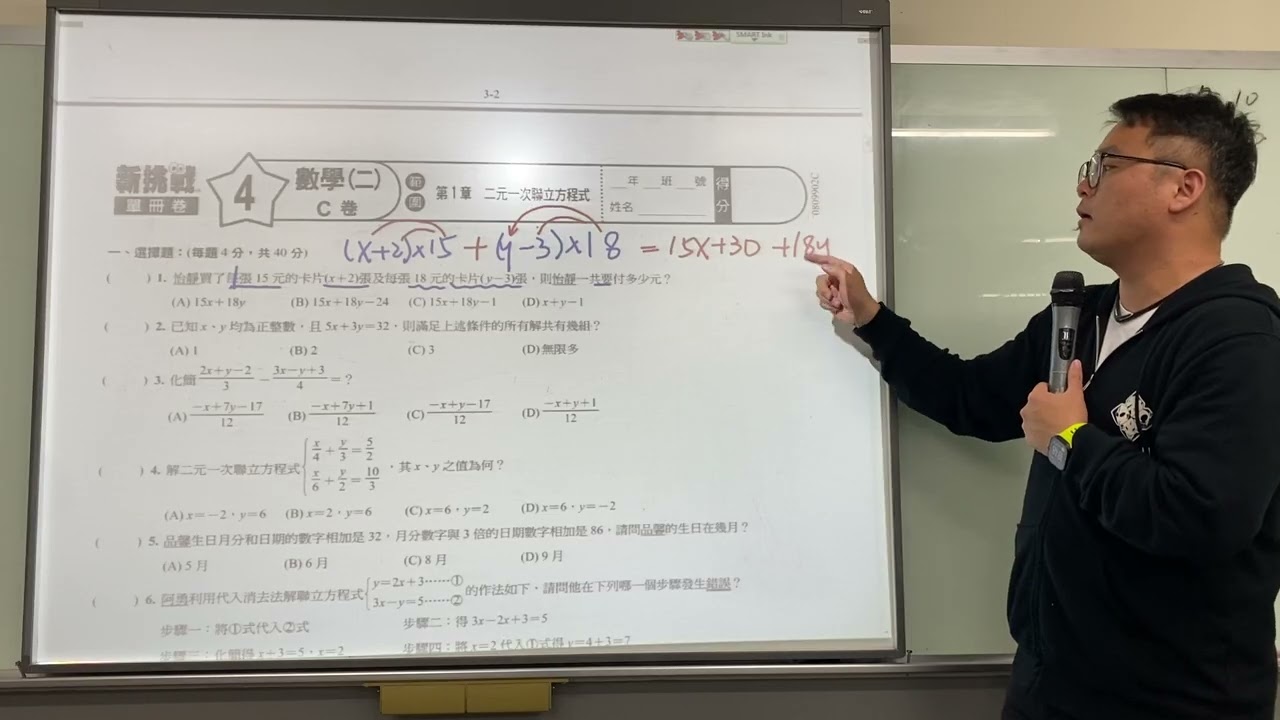 SMART Ink
3-2
新挑戰
單冊卷
4
數學(二)
C 卷
範圍
第1章 二元一次聯立方程式
__年__班__號
姓名
得分
(x+2)×15 + (y-3)×18 = 15x+30 +18y
一、選擇題:(每題4分,共40分)
( ) 1. 怡靜買了每張15元的卡片(x+2)張及每張18元的卡片(y-3)張,則怡靜一共要付多少元?
(A) 15x+18y (B) 15x+18y-24 (C) 15x+18y-1 (D) x+y-1
( ) 2. 已知x、y均為正整數,且5x+3y=32,則滿足上述條件的所有解共有幾組?
(A) 1 (B) 2 (C) 3 (D) 無限多
( ) 3. 化簡 (2x+y-2)/3 - (3x-y+3)/4 =?
(A) (-x+7y-17)/12 (B) (-x+7y+1)/12 (C) (-x+y-17)/12 (D) (-x+y+1)/12
( ) 4. 解二元一次聯立方程式 { x/4 + y/3 = 5/2
x/6 + y/2 = 10/3 ,其x、y之值為何?
(A) x=-2,y=6 (B) x=2,y=6 (C) x=6,y=2 (D) x=6,y=-2
( ) 5. 品馨生日月分和日期的數字相加是32,月分數字與3倍的日期數字相加是86,請問品馨的生日在幾月?
(A) 5月 (B) 6月 (C) 8月 (D) 9月
( ) 6. 阿勇利用代入消去法解聯立方程式 { y=2x+3……①
3x-y=5……② 的作法如下,請問他在下列哪一個步驟發生錯誤?
步驟一:將①式代入②式 步驟二:得3x-2x+3=5
步驟三:化簡得x+3=5,x=2 步驟四:將x=2代入①式得y=4+3=7
10